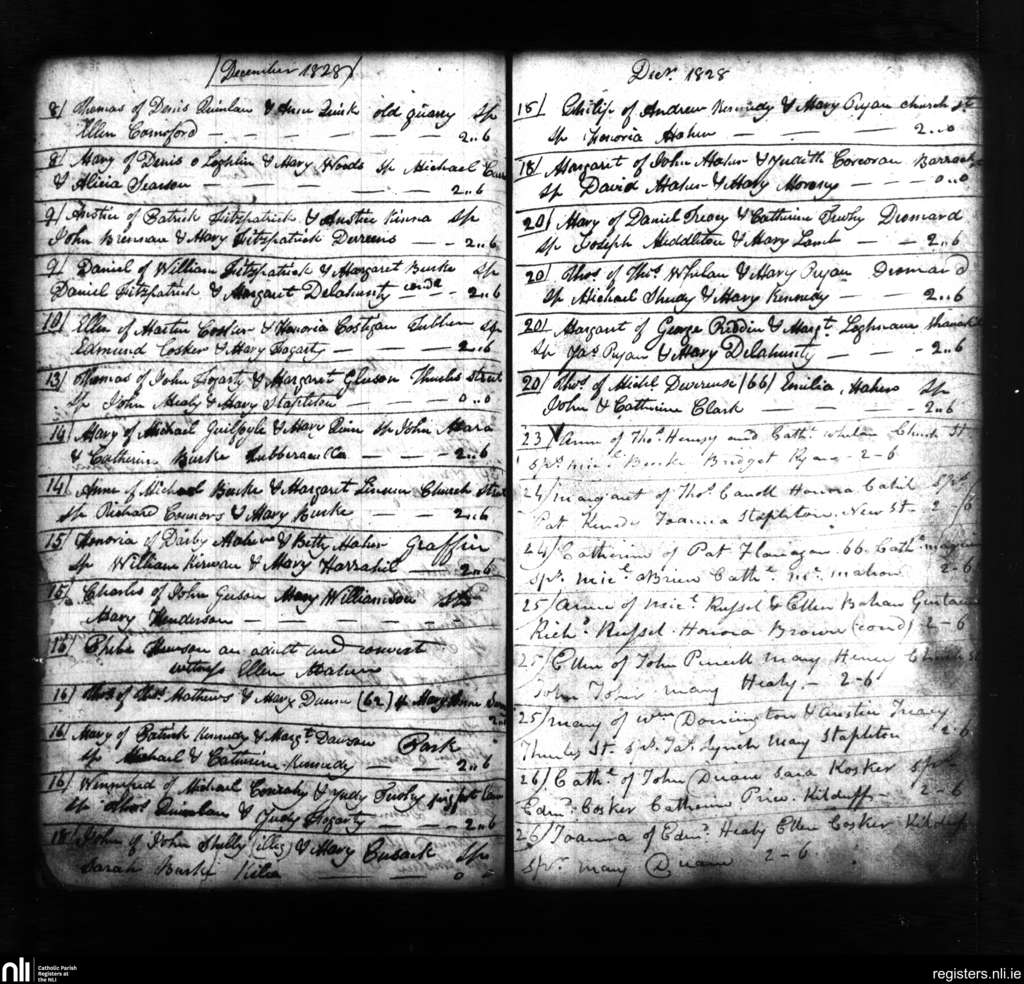 December 1828
8/ Thomas of Denis Quinlan & Anne Quirk old quarry Sp
Ellen Comerford 2..6
8/ Mary of Denis o Loghlin & Mary Woods Sp Michael
& Alicia Searson 2..6
9/ Austin of Patrick Fitzpatrick & Austin Kinna Sp
John Brennan & Mary Fitzpatrick Derreens 2..6
9 Daniel of William Fitzpatrick & Margaret Burke Sp
Daniel Fitzpatrick & Margaret Delahunty cond 2..6
10/ Ellen of Martin Cosker & Honoria Costigan Sp
Edmund Cosker & Mary Fogarty 2..6
13/ Thomas of John Fogarty & Margaret Gleeson Thurles street
Sp John Mealy & Mary Stapleton 0..0
14/ Mary of Michael Guilfoyle & Mary Quin Sp John Meara
& Catherine Burke 2..6
14/ Anne of Michael Burke & Margaret Church street
Sp Richard Connors & Mary Burke 2..6
15/ Honoria of Darby Maher & Betty Maher Graffin
Sp William Kirwan & Mary Harrahil 2..6
15/ Charles of John Geeson Mary Williamson Sp
Mary Henderson
16/ Phebe an adult and convert
witness Ellen Mahers
16/ Thos of Thos Mathews & Mary Dunne (62) Sp Mary Anne
16/ Mary of Patrick Kennedy & Margt Dawson Park
Sp Michael & Catherine Kennedy 2..6
16/ Winnifred of Michael & Judy
Sp Thos Quinlan & Judy Fogarty 2..6
18/ John of John Shelly (illeg) & Mary Cusack Sp
Sarah Burke 0 0
Decr 1828
15/ Philip of Andrew Kennedy & Mary Ryan church st
Sp Honoria Maher 2..0
18/ Margaret of John Maher & Judith Corcoran Barrack
Sp David Maher & Mary Morony 0..0
20/ Mary of Daniel Treacy & Catherine Dromard
Sp Joseph Middleton & Mary Lamb 2..6
20/ Thos of Thos Whelan & Mary Ryan Dromard
Sp Michael Sheedy & Mary Kennedy 2..6
20/ Margaret of George & Margt Loghnane
Sp Jas Ryan & Mary Delahunty 2..6
20/ Thos of Michl Devereuse (66) Emilia Mahers Sp
John & Catherine Clark 2..6
23/ Anne of Thos Henesy and Cathe whelan Church St
Sps Micl Burke Bridget Ryan 2-6
24/ Margaret of Thos Caroll Honora Cahil Sps
Pat Kenedy Joanna Stapleton New St 2/6
24/ Catherine of Pat Flanagan 66 Cathe
Sps Micl oBrien Cathe Mc mahon 2-6
25/ Anne of Micl Russel & Ellen Bohan
Richd Russel Honora Brown (cond) 2-6
25/ Ellen of John Purcell Mary Church St
John Mary Healy 2-6
25/ Mary of Wm Dorrington & Austin Treacy
Thurles St. Sps Jas Lynch Mary Stapleton 2-6
26/ Cathe of John Duane Sara Kosker Sps
Edmd Cosker Catherine Price Kilduff 2-6
26/ Joanna of Edmd Healy Ellen Cosker Kilduff
Sps Mary Duane 2-6
nli Catholic Parish
Registers at
the NLI
registers.nli.ie